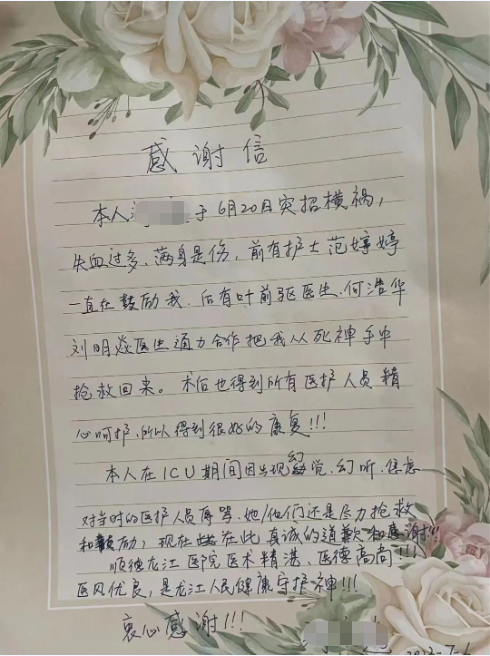 感谢信
本人 于6月20日突招横祸，
失血过多、满身是伤，前有护士范婷婷
一直在鼓励我，后有叶前驱医生、何浩华
刘明焱医生通力合作把我从死神手中
抢救回来。术后也得到所有医护人员精
心呵护，所以得到很好的康复!!!
本人在ICU期间因出现幻觉，幻听、焦虑
对当时的医护人员辱骂，她/他们还是尽力抢救
和鼓励，现在在此真诚的道歉和感谢!!!
顺德龙江医院医术精湛、医德高尚!!!
医风优良，是龙江人民健康守护神!!!
衷心感谢!!!